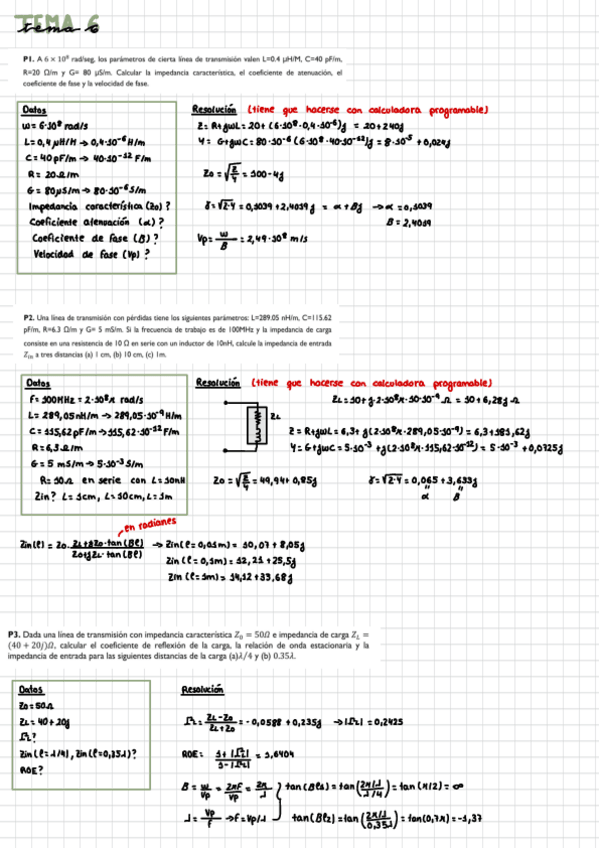 TEMA 6
tema 6
P1. A 6 × 10⁸ rad/seg, los parámetros de cierta línea de transmisión valen L=0.4 µH/M, C=40 pF/m,
R=20 Ω/m y G= 80 µS/m. Calcular la impedancia característica, el coeficiente de atenuación, el
coeficiente de fase y la velocidad de fase.
Datos
ω = 6·10⁸ rad/s
L = 0,4 µH/M → 0,4·10⁻⁶ H/m
C = 40 pF/m → 40·10⁻¹² F/m
R = 20 Ω/m
G = 80 µS/m → 80·10⁻⁶ S/m
Impedancia característica (Zo) ?
Coeficiente atenuación (α) ?
Coeficiente de fase (B) ?
Velocidad de fase (Vp) ?
Resolución (tiene que hacerse con calculadora programable)
Z = R+jωL = 20 + (6·10⁸·0,4·10⁻⁶)j = 20+240j
Y = G+jωC = 80·10⁻⁶ (6·10⁸·40·10⁻¹²)j = 8·10⁻⁵ + 0,024j
Zo = √(Z/Y) = 100-4j
γ = √(Z·Y) = 0,1039 + 2,4019j = α + Bj → α = 0,1039
B = 2,4019
Vp = ω/B = 2,49·10⁸ m/s
P2. Una línea de transmisión con pérdidas tiene los siguientes parámetros: L=289.05 nH/m, C=115.62
pF/m, R=6.3 Ω/m y G= 5 mS/m. Si la frecuencia de trabajo es de 100MHz y la impedancia de carga
consiste en una resistencia de 10 Ω en serie con un inductor de 10nH, calcule la impedancia de entrada
Zᵢₙ a tres distancias (a) 1 cm, (b) 10 cm, (c) 1m.
Datos
F = 100MHz = 2·10⁸π rad/s
L = 289,05 nH/m → 289,05·10⁻⁹ H/m
C = 115,62 pF/m → 115,62·10⁻¹² F/m
R = 6,3 Ω/m
G = 5 mS/m → 5·10⁻³ S/m
R = 10Ω en serie con L = 10nH
Zin? L = 1cm, L = 10cm, L = 1m
Resolución (tiene que hacerse con calculadora programable)
ZL
ZL = 10+j·2·10⁸π·10·10⁻⁹ Ω = 10 + 6,28j Ω
Z = R+jωL = 6,3 + j(2·10⁸π·289,05·10⁻⁹) = 6,3 + 181,62j
Y = G+jωC = 5·10⁻³ + j(2·10⁸π·115,62·10⁻¹²) = 5·10⁻³ + 0,0725j
Zo = √(Z/Y) = 49,94 + 0,85j
γ = √(Z·Y) = 0,065 + 3,633j
α B
en radianes
Zin(ℓ) = Zo · (ZL+jZo·tan(Bℓ))/(Zo+jZL·tan(Bℓ)) → Zin(ℓ = 0,01m) = 10,07 + 8,05j
Zin (ℓ = 0,1m) = 12,21 + 25,5j
Zin (ℓ = 1m) = 14,12 + 33,68j
P3. Dada una línea de transmisión con impedancia característica Z₀ = 50Ω e impedancia de carga Z_L =
(40 + 20j)Ω, calcular el coeficiente de reflexión de la carga, la relación de onda estacionaria y la
impedancia de entrada para las siguientes distancias de la carga (a)λ/4 y (b) 0.35λ.
Datos
Zo = 50Ω
ZL = 40 + 20j
ΓL?
Zin (ℓ = λ/4), Zin(ℓ=0,35λ)?
ROE?
Resolución
ΓL = (ZL-Zo)/(ZL+Zo) = -0,0588 + 0,235j → |ΓL| = 0,2425
ROE: (1+|ΓL|)/(1-|ΓL|) = 1,6404
B = ω/Vp = 2πF/Vp = 2π/λ
λ = Vp/f → f = Vp/λ
tan(Bℓ1) = tan(2π/λ λ/4) = tan(π/2) = ∞
tan(Bℓ2) = tan(2π/λ 0,35λ) = tan(0,7π) = -1,37